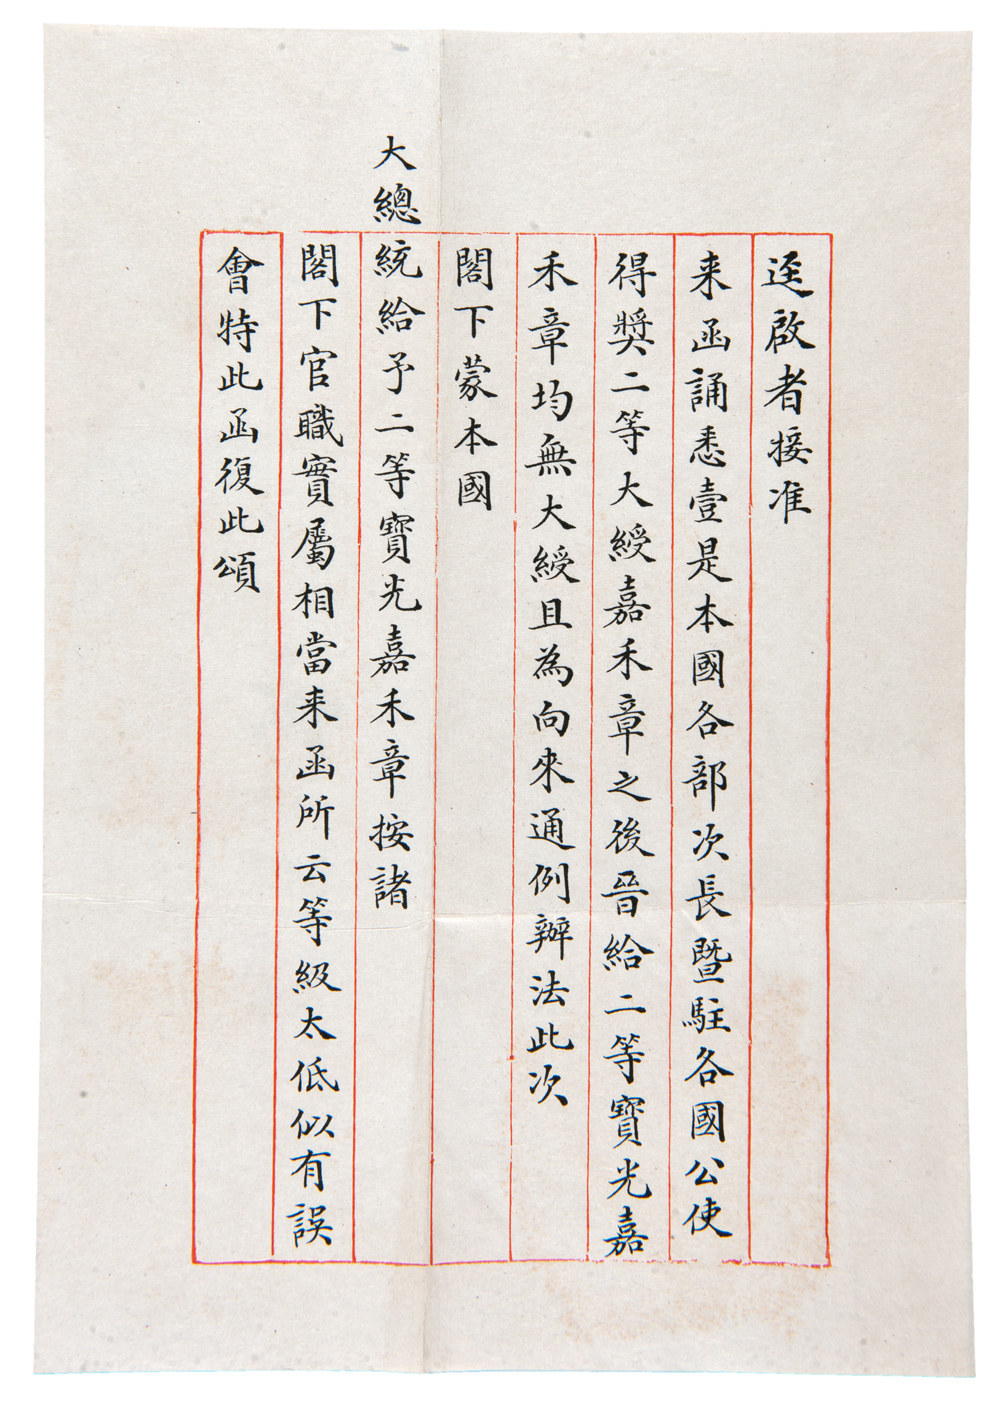 逕啟者接准
来函誦悉壹是本國各部次長暨駐各國公使
得獎二等大綬嘉禾章之後晉給二等寶光嘉
禾章均無大綬且為向來通例辦法此次
閣下蒙本國
大總統給予二等寶光嘉禾章按諸
閣下官職實屬相當来函所云等級太低似有誤
會特此函復此頌